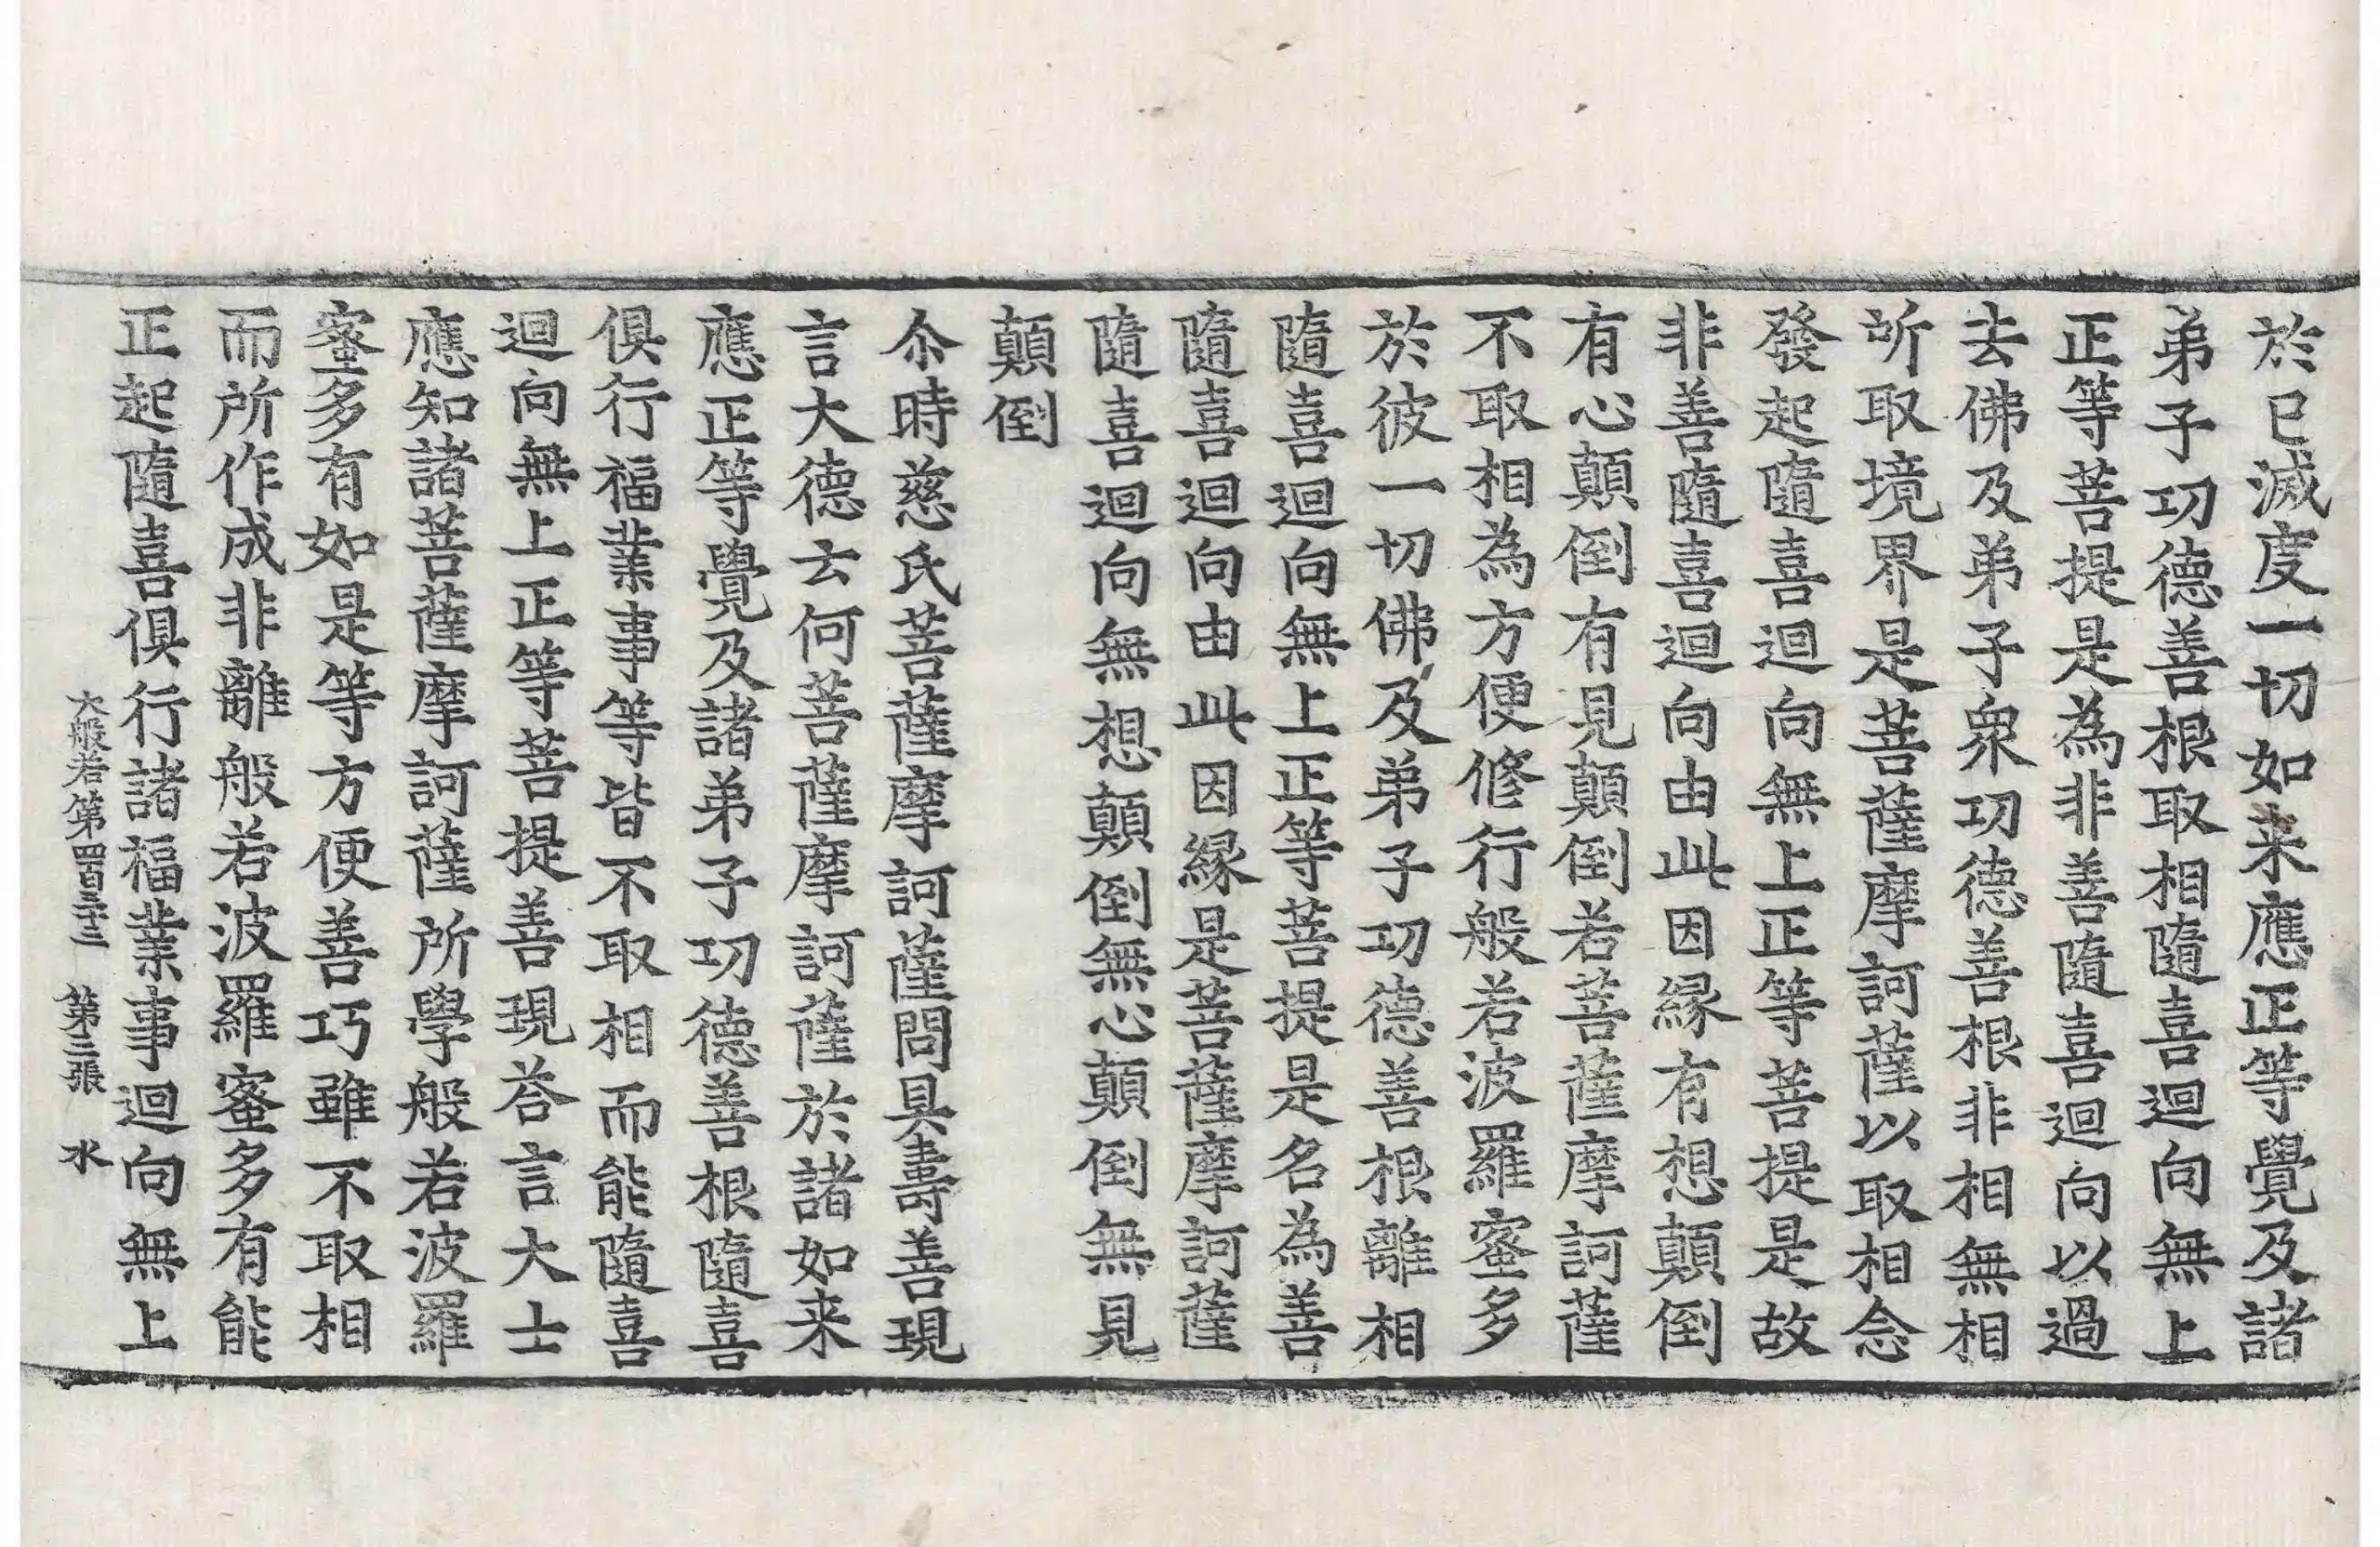 於已滅度一切如来應正等覺及諸
弟子功德善根取相隨喜迴向無上
正等菩提是為非善隨喜迴向以過
去佛及弟子衆功德善根非相無相
所取境界是菩薩摩訶薩以取相念
發起隨喜迴向無上正等菩提是故
非善隨喜迴向由此因緣有想顛倒
有心顛倒有見顛倒若菩薩摩訶薩
不取相為方便修行般若波羅蜜多
於彼一切佛及弟子功德善根離相
隨喜迴向無上正等菩提是名為善
隨喜迴向由此因緣是菩薩摩訶薩
隨喜迴向無想顛倒無心顛倒無見
顛倒
尒時慈氏菩薩摩訶薩問具壽善現
言大德云何菩薩摩訶薩於諸如来
應正等覺及諸弟子功德善根隨喜
俱行福業事等皆不取相而能隨喜
迴向無上正等菩提善現荅言大士
應知諸菩薩摩訶薩所學般若波羅
蜜多有如是等方便善巧雖不取相
而所作成非離般若波羅蜜多有能
正起隨喜俱行諸福業事迴向無上
大般若第四百三十三　第三張　水